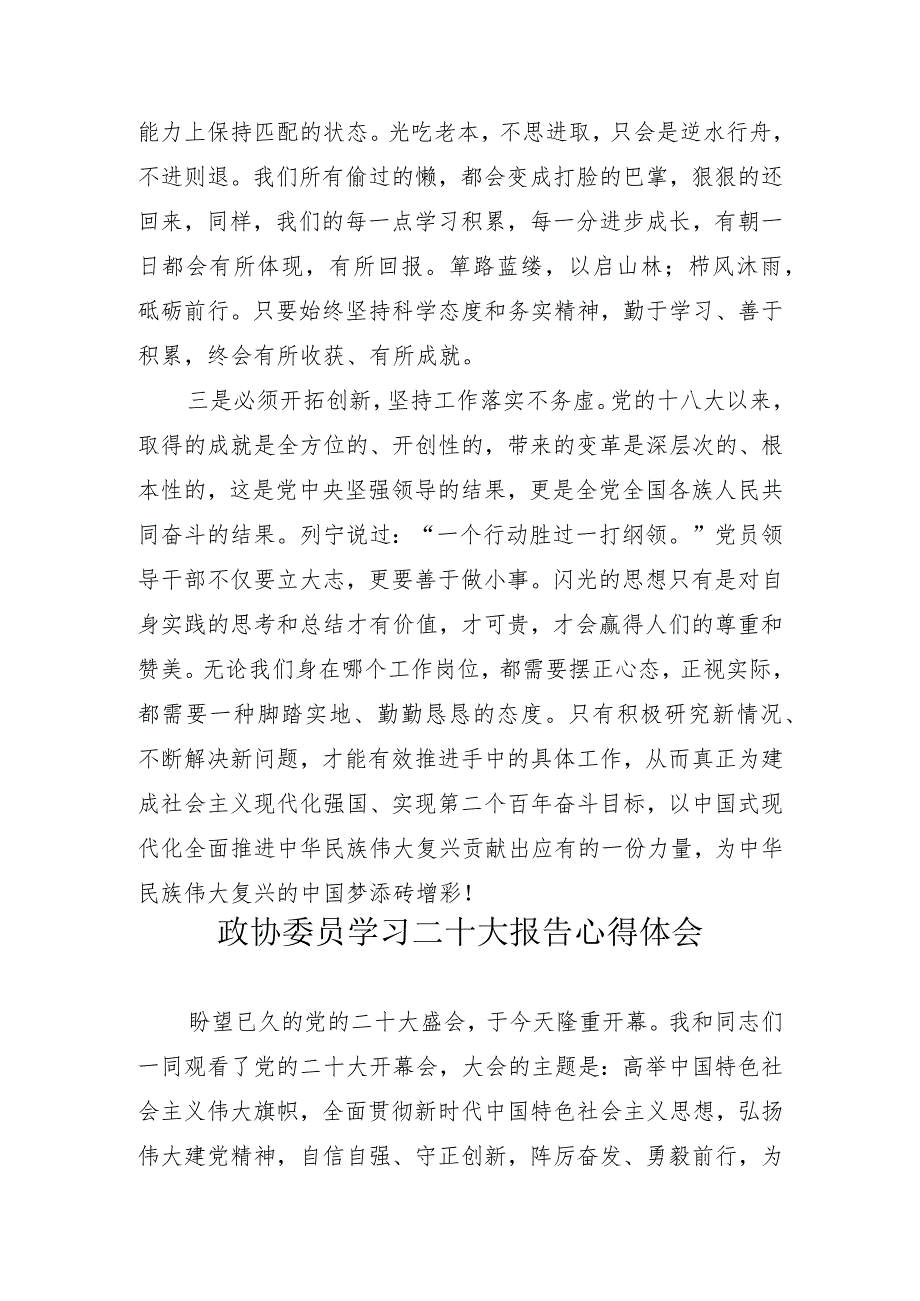 能力上保持匹配的状态。光吃老本，不思进取，只会是逆水行舟，
不进则退。我们所有偷过的懒，都会变成打脸的巴掌，狠狠的还
回来，同样，我们的每一点学习积累，每一分进步成长，有朝一
日都会有所体现，有所回报。筚路蓝缕，以启山林；栉风沐雨，
砥砺前行。只要始终坚持科学态度和务实精神，勤于学习、善于
积累，终会有所收获、有所成就。
三是必须开拓创新，坚持工作落实不务虚。党的十八大以来，
取得的成就是全方位的、开创性的，带来的变革是深层次的、根
本性的，这是党中央坚强领导的结果，更是全党全国各族人民共
同奋斗的结果。列宁说过：“一个行动胜过一打纲领。”党员领
导干部不仅要立大志，更要善于做小事。闪光的思想只有是对自
身实践的思考和总结才有价值，才可贵，才会赢得人们的尊重和
赞美。无论我们身在哪个工作岗位，都需要摆正心态，正视实际，
都需要一种脚踏实地、勤勤恳恳的态度。只有积极研究新情况、
不断解决新问题，才能有效推进手中的具体工作，从而真正为建
成社会主义现代化强国、实现第二个百年奋斗目标，以中国式现
代化全面推进中华民族伟大复兴贡献出应有的一份力量，为中华
民族伟大复兴的中国梦添砖增彩！
政协委员学习二十大报告心得体会
盼望已久的党的二十大盛会，于今天隆重开幕。我和同志们
一同观看了党的二十大开幕会，大会的主题是：高举中国特色社
会主义伟大旗帜，全面贯彻新时代中国特色社会主义思想，弘扬
伟大建党精神，自信自强、守正创新，踔厉奋发、勇毅前行，为